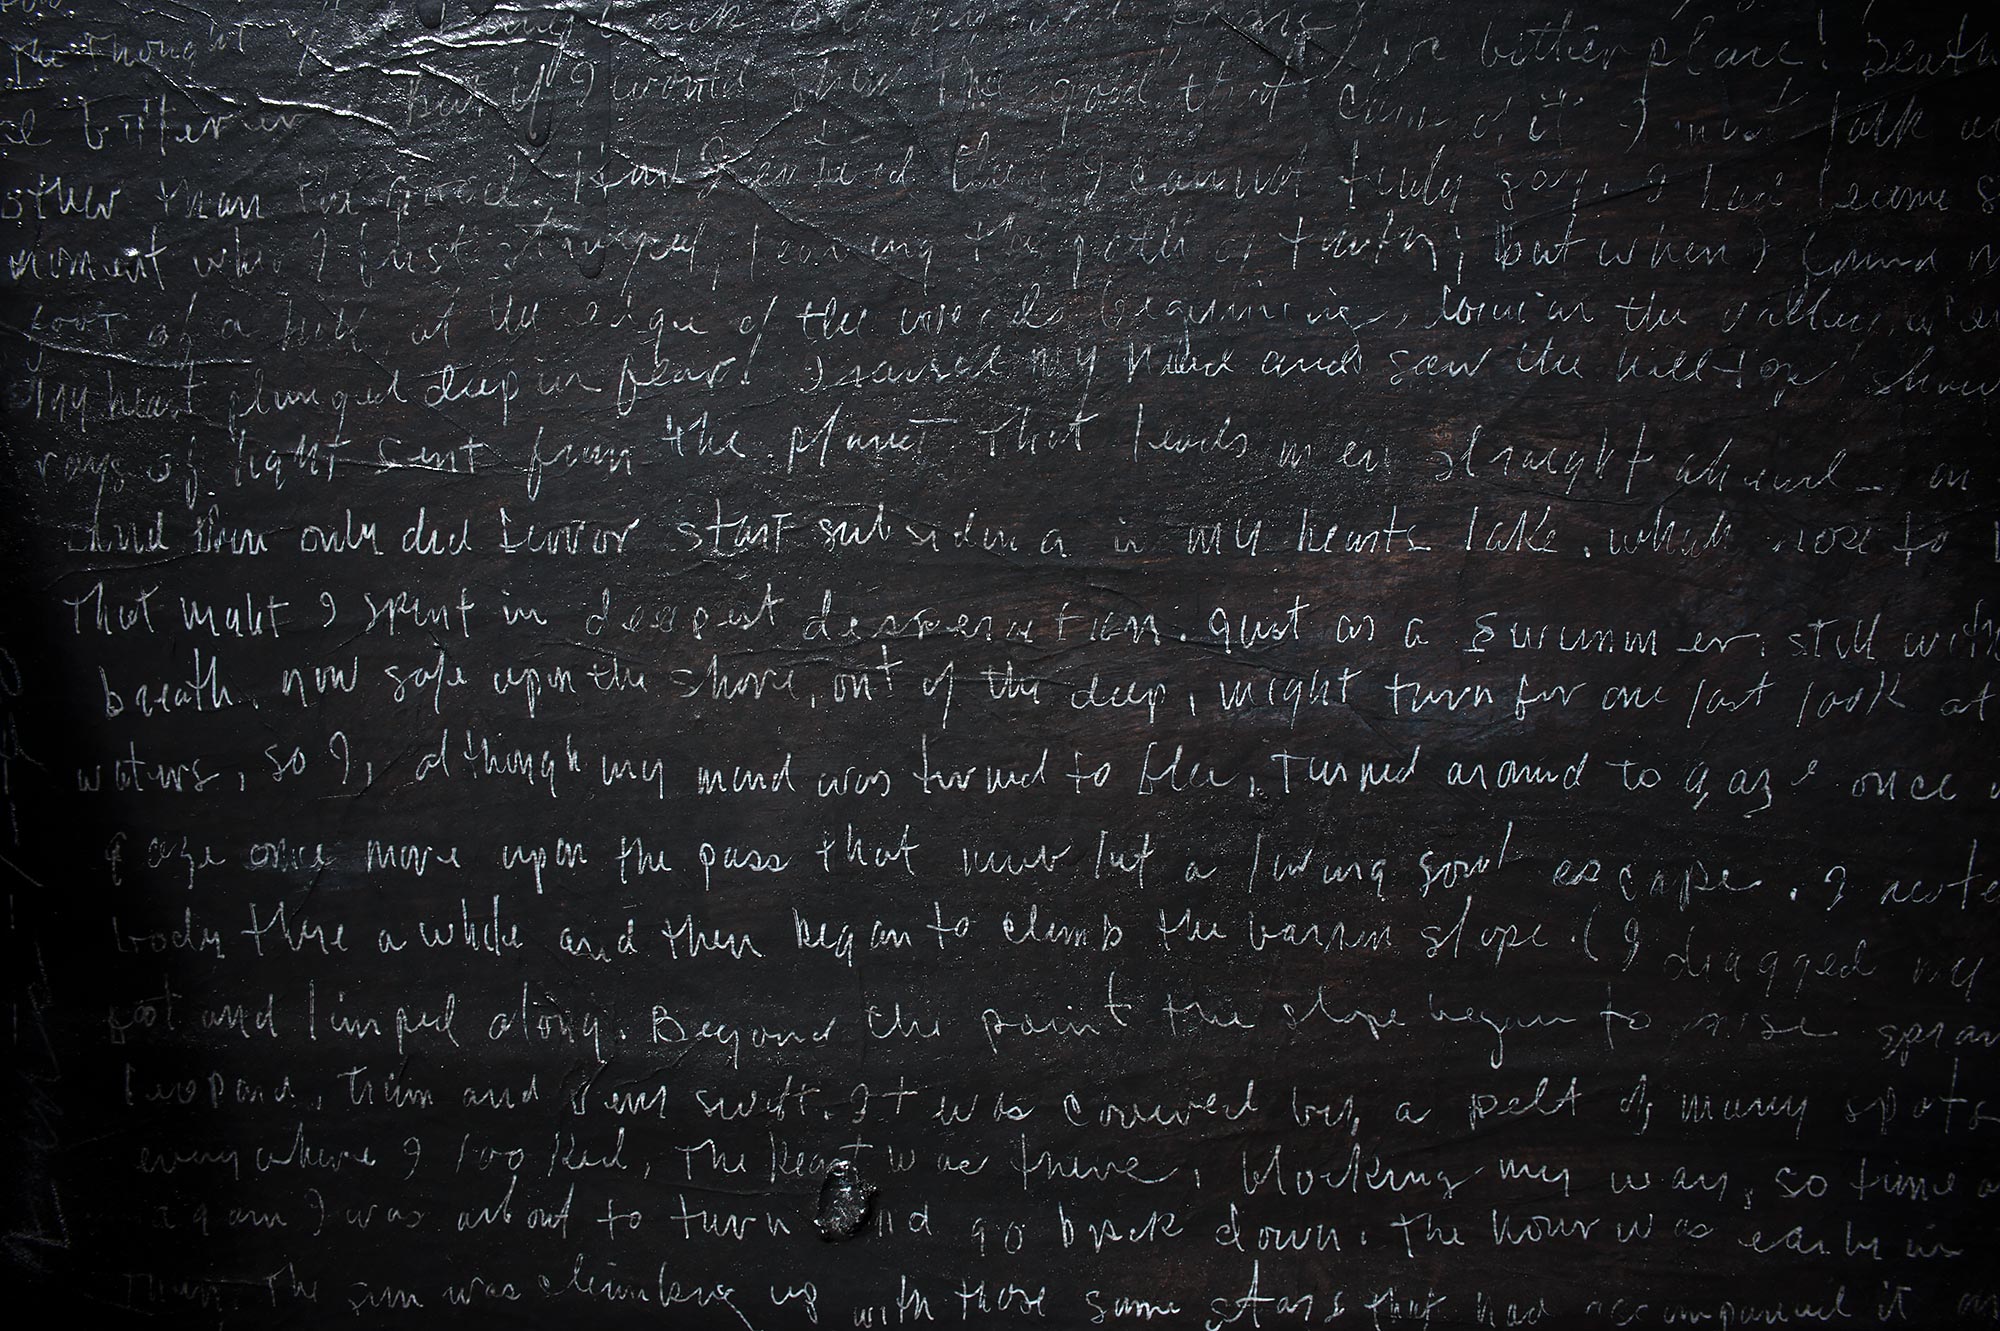 The thought of it brings back all my old fears! in bitter place! Death
be bitterer. But if I would show the good that came of it I must talk
other than the good. How I entered there I cannot truly say, I had become
moment when I first strayed, leaving the path of truth; but when I found
foot of a hill, at the edge of the wood's beginning, down in the valley,
My heart plunged deep in fear! I raised my head and saw the hilltop
rays of light sent from the planet that leads men straight ahead on
And then only did terror start subsiding in my hearts lake. which rose to
that night I spent in deepest desperation. Just as a swimmer, still with
breath, now safe upon the shore, out of the deep, might turn for one last look at
waters, so I, although my mind was turned to flee, turned around to gaze once
gaze once more upon the pass that never let a living soul escape. I
body there a while and then began to climb the barren slope. (I dragged my
foot and limped along. Beyond the point the slope began to rise
leopard, trim and very swift. It was covered by a pelt of many spots
everywhere I looked, the beast was there, blocking my way, so time
again I was about to turn and go back down. The hour was early in
Then the sun was climbing up with those same stars that had accompanied it